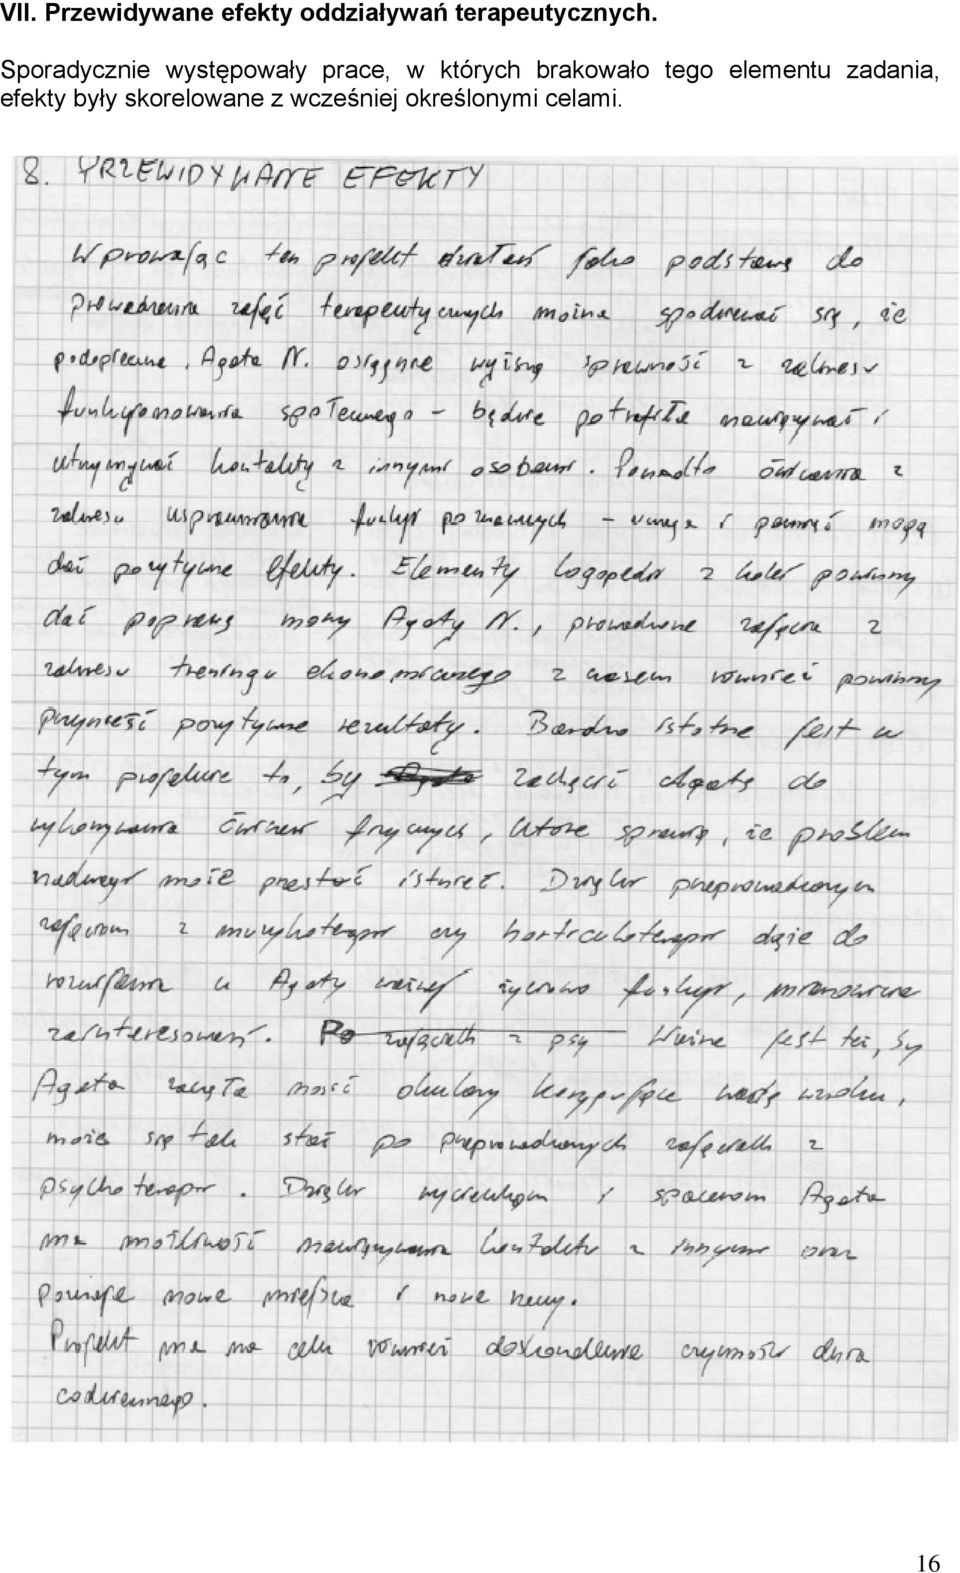 VII. Przewidywane efekty oddziaływań terapeutycznych.
Sporadycznie występowały prace, w których brakowało tego elementu zadania,
efekty były skorelowane z wcześniej określonymi celami.
8. PRZEWIDYWANE EFEKTY
ten projekt działań jako podstawę do
prowadzenia zajęć terapeutycznych można spodziewać się, że
podopieczna, Agata N. osiągnie wyższą sprawność z zakresu
funkcjonowania społecznego – będzie potrafiła nawiązywać i
utrzymywać kontakty z innymi osobami. Ponadto ćwiczenia z
zakresu usprawniania funkcji poznawczych – uwaga i pamięć mogą
dać pozytywne efekty. Elementy logopedii z kolei powinny
dać poprawę mowy Agaty N., prowadzone zajęcia z
zakresu treningu ekonomicznego z czasem również powinny
przynieść pozytywne rezultaty. Bardzo istotne jest w
tym projekcie to, by zachęcić Agatę do
wykonywania ćwiczeń fizycznych, które sprawią, że problem
nadwagi może przestać istnieć. Dzięki przeprowadzonym
zajęciom z muzykoterapii czy hortikuloterapii dąże do
rozwijania u Agaty ważnej życiowo funkcji, mianowicie
zainteresowań. Po zajęciach z psy Ważne jest też, by
Agata zaczęła nosić okulary korygujące wadę wzroku,
może się tak stać po przeprowadzonych zajęciach z
psychoterapii. Dzięki wycieczkom i spacerom Agata
ma możliwość nawiązywania kontaktu z innymi oraz
poznaje nowe miejsca i nowe rzeczy.
Projekt ma na celu również doskonalenie czynności dnia
codziennego.
16